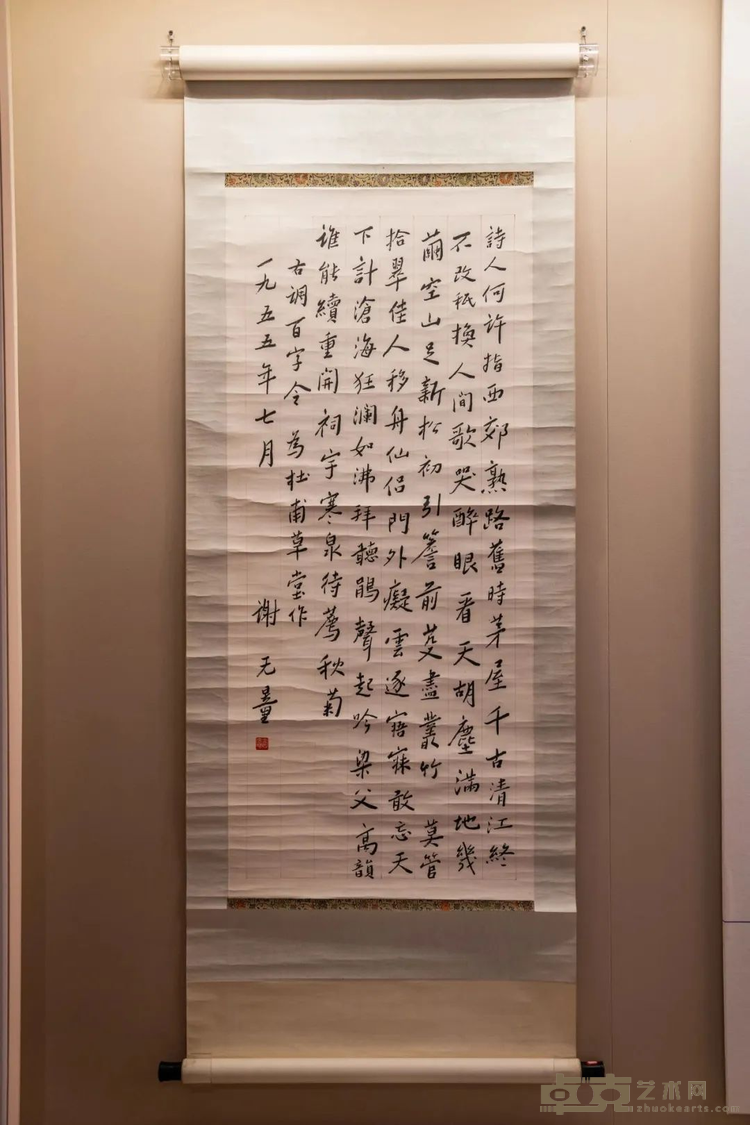 詩人何許指西郊熟路舊時茅屋千古清江終
不改秖換人間歌哭醉眼看天胡塵滿地幾
繭空山足新松初引簷前芟盡叢竹莫管
拾翠佳人移舟仙侣門外癡雲逐寤寐敢忘天
下計滄海狂瀾如沸拜聽鵑聲起吟梁父高韻
誰能續重開祠宇寒泉待薦秋菊
右调百字令為杜甫草堂作
一九五五年七月 谢无量
卓克艺术网
zhuokearts.com